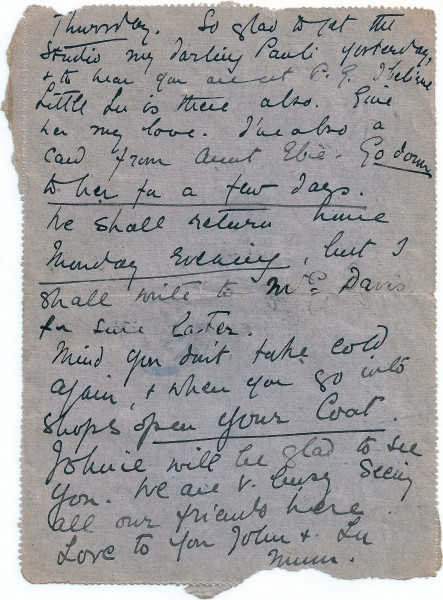 Thursday. So glad to get the
Studio my darling Pauli yesterday,
& to hear you are at P. G. I believe
Little Lu is there also. Give
her my love. I've also a
card from Aunt Elsie. Go down
to her for a few days.
We shall return home
Monday evening, but I
shall write to Mrs Davis
for later.
Mind you don't take cold
again, & when you go into
shops open your Coat.
Johnie will be glad to see
you. We are v. busy seeing
all our friends here.
Love to you John & Lu
Mum.